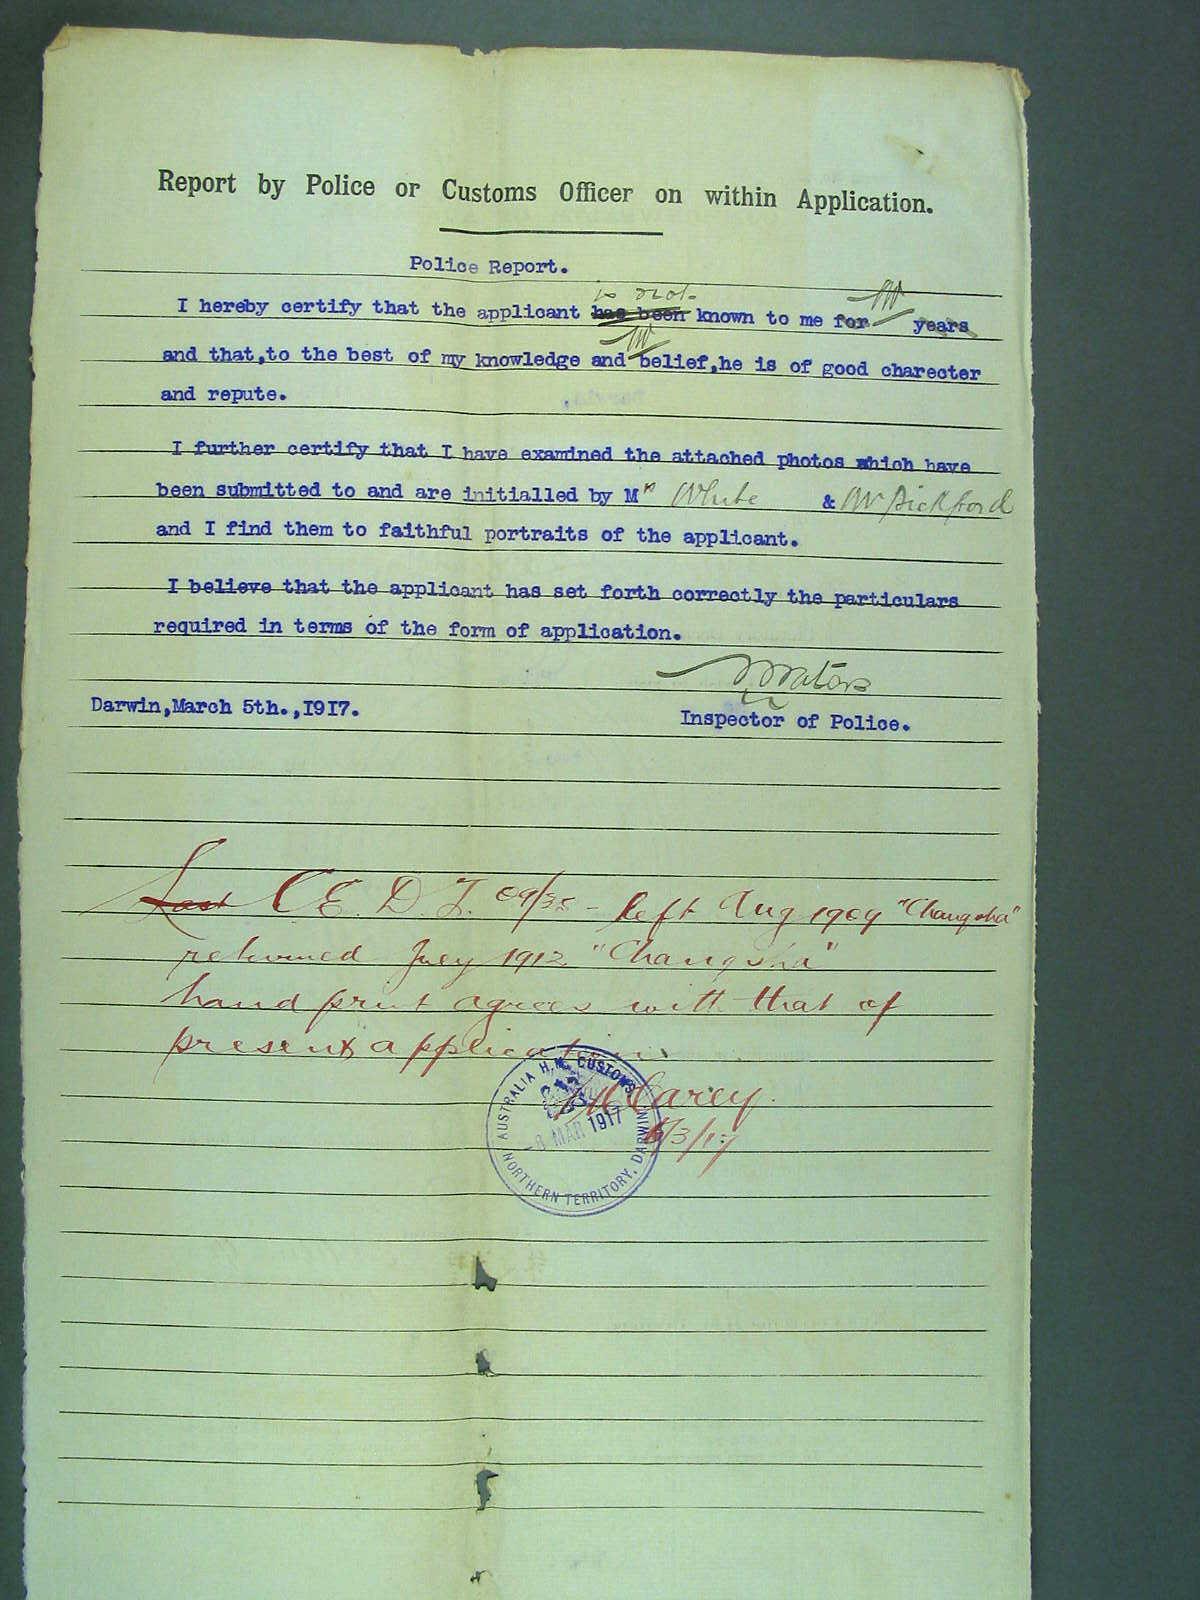 Report by Police or Customs Officer on within Application.
Police Report.
is not
I hereby certify that the applicant has been known to me for years
and that,to the best of my knowledge and belief,he is of good charecter
and repute.
I further certify that I have examined the attached photos which have
been submitted to and are initialled by Mr White & W Pickford
and I find them to faithful portraits of the applicant.
I believe that the applicant has set forth correctly the particulars
required in terms of the form of application.
Waters
Darwin,March 5th.,1917.
Inspector of Police.
Last C E. D. T. 09/35 - left Aug 1909 "Changsha"
returned July 1912 "Changsha"
hand print agrees with that of
present application
Carey.
6/3/17
AUSTRALIA H.M. CUSTOMS
-8 MAR 1917
NORTHERN TERRITORY. DARWIN